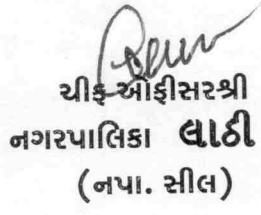 ચીફ ઓફીસરશ્રી
નગરપાલિકા લાઠી
(નપા. સીલ)